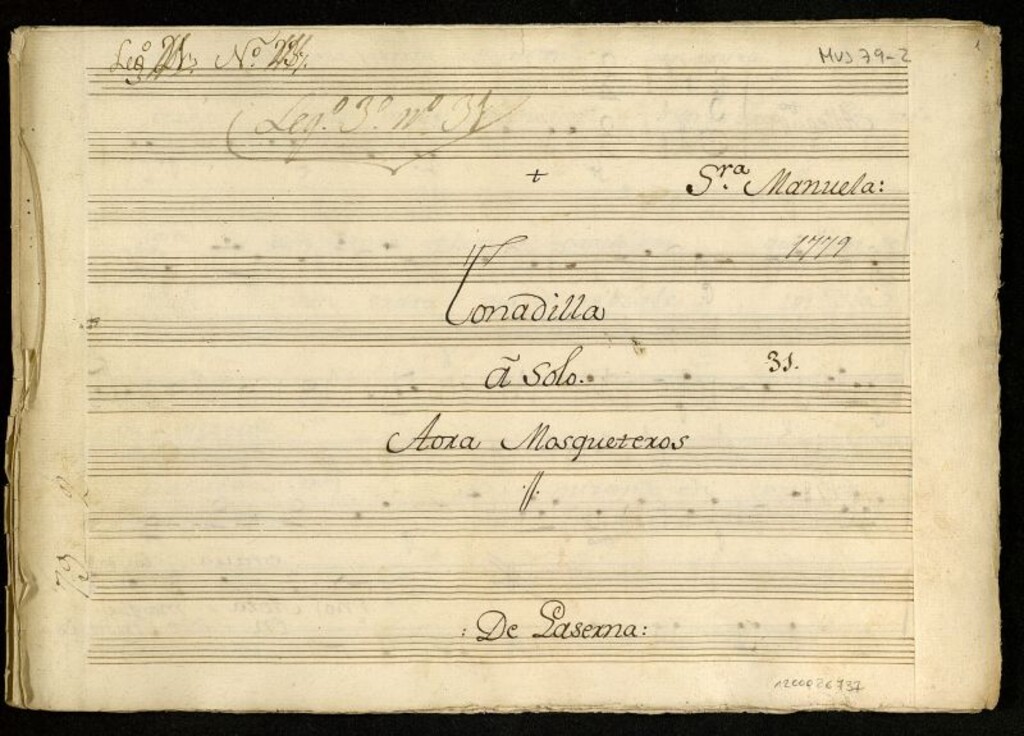 Leg.º Nº
MUS 79-2
1
Leg.º 3.º nº 31
+
S.ra Manuela:
1779
Tonadilla
â Solo.
31.
Aora Mosqueteros
.//.
: De Laserna:
79
1200026737